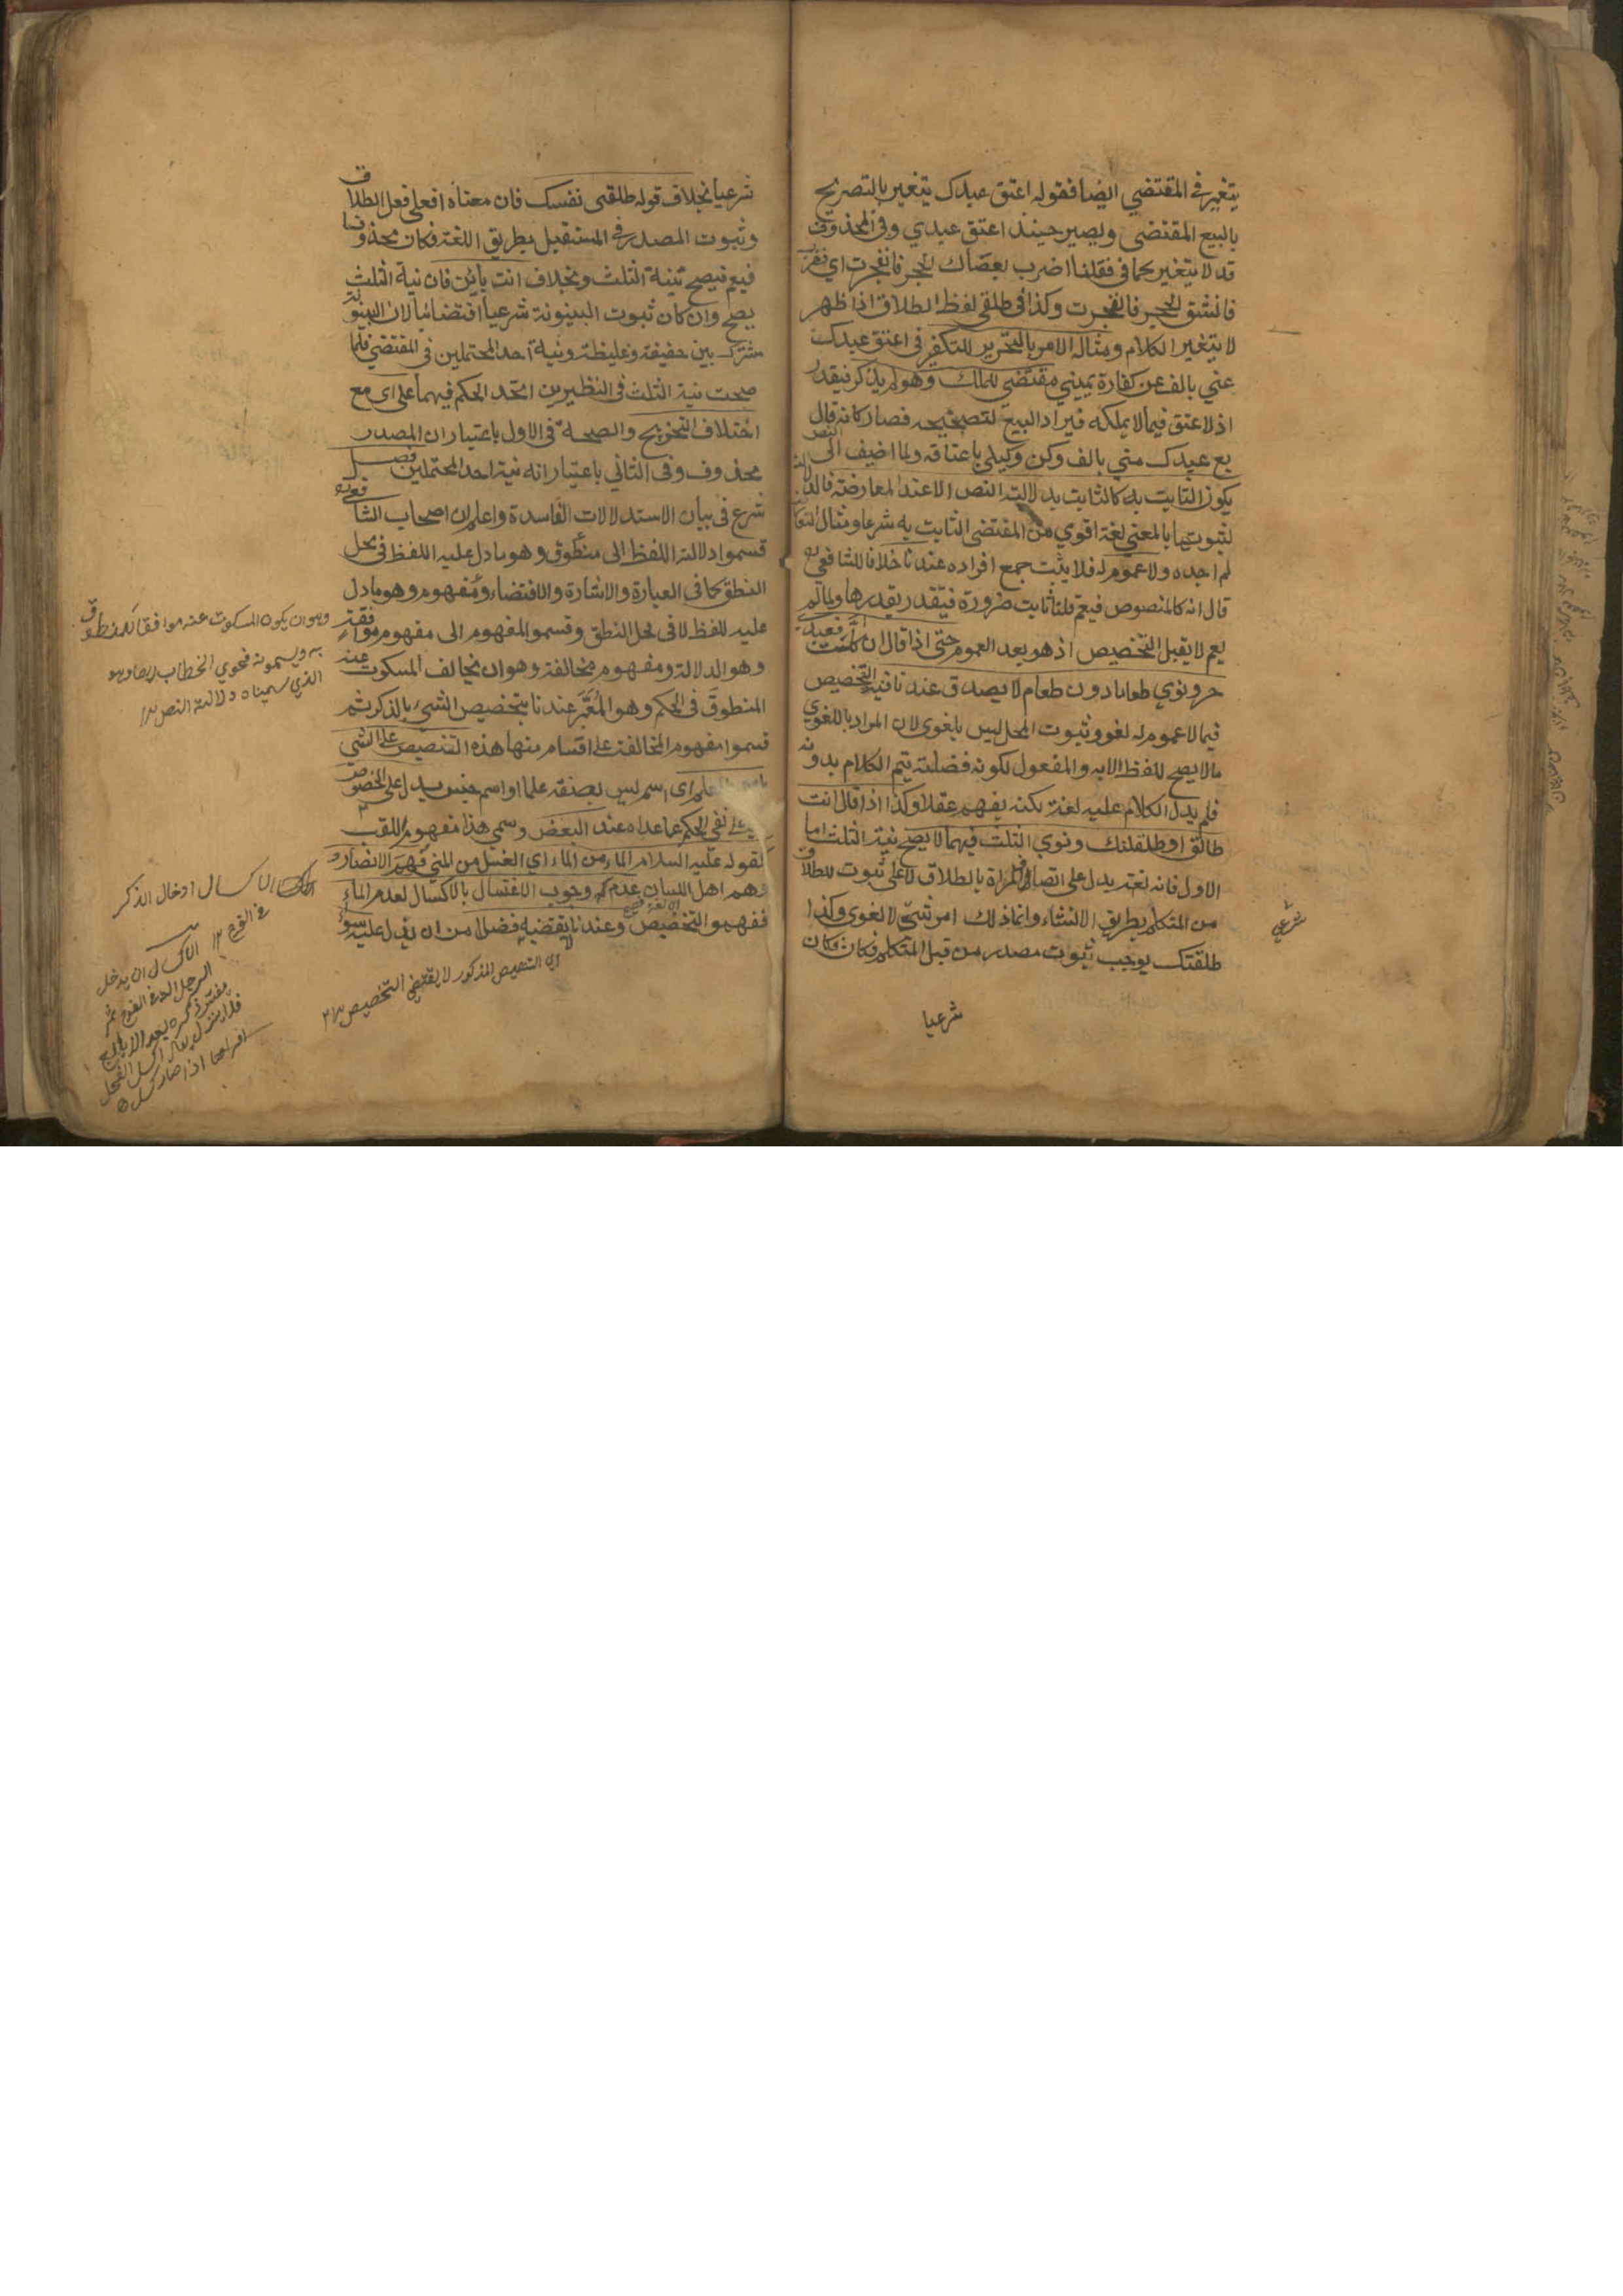 يتغير في المقتضي ايضا فقوله اعتق عبدك يتغير بالتصريح
بالبيع المقتضى ويصير حينئذ اعتق عبدي وفي المحذوف
قد لا يتغير كما في فقلنا اضرب بعصاك الحجر فانفجرت اي فضرب
فانشق الحجر فانفجرت وكذا في طلقي لفظ الطلاق اذا ظهر
لا يتغير الكلام ومثاله الامر بالتحرير للتكفير في اعتق عبدك
عني بالف عن كفارة يميني مقتضى للملك وهو لم يذكر فيقدر
اذ لا عتق فيما لا يملكه فيراد البيع لتصحيحه فصار كانه قال
بع عبدك مني بالف وكن وكيلي باعتاقه ولما اضيف الى النص
يكون الثابت به كالثابت بدلالة النص الا عند المعارضة فالدلالة
لثبوتها بالمعني لغة اقوي من المقتضى الثابت به شرعا ومثال
لم اجده ولا عموم له فلا يثبت جمع افراده عندنا خلافا للشافعي
قال انه كالمنصوص فيعم قلنا ثابت ضرورة فيتقدر بقدرها ولما لم
يعم لا يقبل التخصيص اذ هو بعد العموم حتى اذا قال ان اكلت فعبدي
حر ونوي طعاما دون طعام لا يصدق عندنا نية التخصيص
فيما لا عموم له لغو وثبوت المحل ليس بلغوى لان المراد باللغوي
ما لا يصح اللفظ الا به والمفعول لكونه فضلة يتم الكلام بدونه
فلم يدل الكلام عليه لغة لكنه يفهم عقلا وكذا اذا قال انت
طالق او طلقتك ونوي الثلث فيهما لا يصح نية الثلث اما
الاول فانه لغة يدل على اتصاف المراة بالطلاق لا على ثبوت الطلاق
من المتكلم بطريق الانشاء وانما ذلك امر شرعي لا لغوى وكذا
طلقتك يوجب ثبوت مصدر من قبل المتكلم فكان
شرعي
شرعيا
شرعيا بخلاف قوله طلقى نفسك فان معناه افعلى فعل الطلاق
وثبوت المصدر في المستقبل بطريق اللغة فكان محذوفا
فيعم فيصح نية الثلث وبخلاف انت بائن فان نية الثلث
يصح وان كان ثبوت البينونة شرعيا اقتضائيا لان البينونة
مشترك بين خفيفة وغليظة ونية احد المحتملين في المقتضي فلما
صحت نية الثلث في النظيرين اتحد الحكم فيهما على اى مع
اختلاف التخريج والصحة في الاول باعتبار ان المصدر
محذوف وفي الثاني باعتبار انه نية احد المحتملين فصل
شرع في بيان الاستدلالات الفاسدة واعلم ان اصحاب الشافعي
قسموا دلالة اللفظ الى منطوق وهو ما دل عليه اللفظ في محل
النطق كما في العبارة والاشارة والاقتضاء ومفهوم وهو ما دل
عليه اللفظ لا في محل النطق وقسموا المفهوم الى مفهوم موافقة
وهو الدلالة ومفهوم مخالفة وهو ان يخالف المسكوت عنه
المنطوق في الحكم وهو المعبر عندنا بتخصيص الشيء بالذكر ثم
قسموا مفهوم المخالفة على اقسام منها هذه التنصيص على الشي
العلم اى اسم ليس بصفة علما او اسم جنس يدل على الخصوص
على نفي الحكم عما عداه عند البعض وسمي هذا مفهوم اللقب
لقوله عليه السلام الماء من الماء اي الغسل من المني فهم الانصار و
هم اهل اللسان عدم وجوب الاغتسال بالاكسال لعدم الماء
ففهموا التخصيص وعندنا لا يقتضيه فضلا من ان يدل عليه سواء
وهو ان يكون المسكوت عنه موافقا للمنطوق
به ويسمونه فحوي الخطاب ايضا وهو
الذي سميناه دلالة النص ١٢
الاكسال ادخال الذكر
في الفرج ١٢
الاكسال ان يدخل
الرجل الذكر في الفرج ثم
يفتر ذكره بعد الايلاج
فلا ينزل يقال اكسل الفحل
اي التنصيص المذكور لا يقتضي التخصيص ١٢